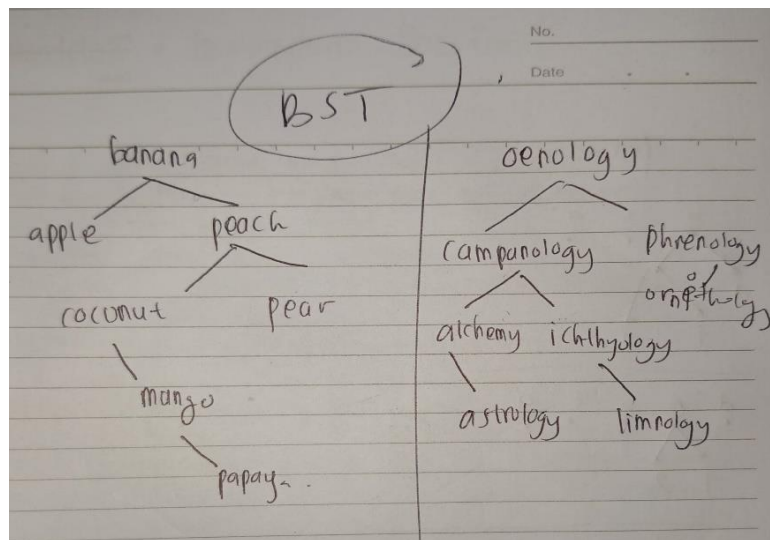 No.
Date
BST
banana
apple peach
coconut pear
mango
papaya
oenology
campanology phrenology
ornithology
alchemy ichthyology
astrology limnology